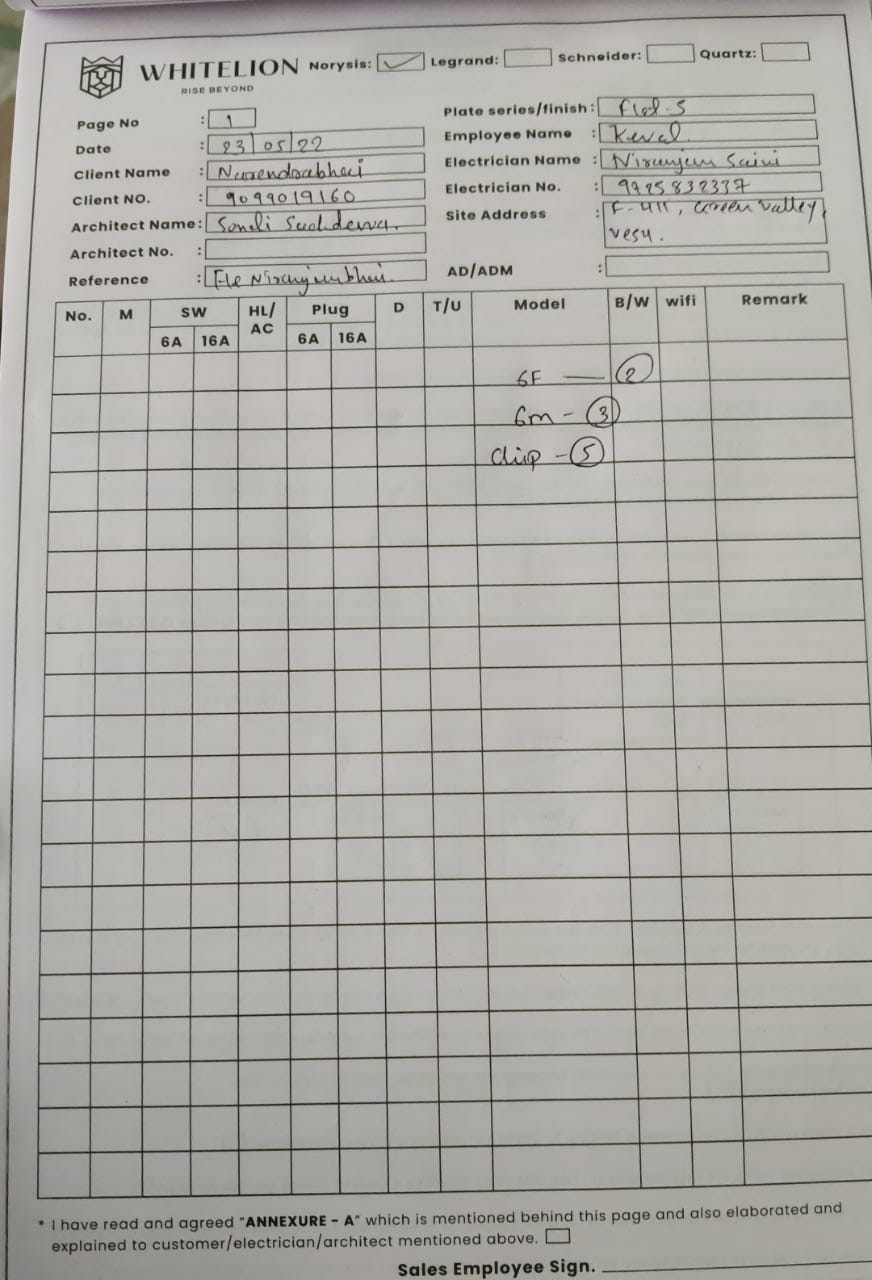 WHITELION
RISE BEYOND
Norysis: ✓ Legrand: Schneider: Quartz:
Page No : 1
Date : 23/05/22
Client Name : Narendrabhai
Client NO. : 9099019160
Architect Name: Sonali Sachdewa.
Architect No. :
Reference : Ele Niranjanbhai.
Plate series/finish:
Employee Name : Keval.
Electrician Name : Niranjan Saini
Electrician No. : 9925832337
Site Address : F-411, Green valley,
Vesu.
AD/ADM :
No. M SW HL/AC Plug D T/U Model B/W wifi Remark
6A 16A 6A 16A
6F — 2
6m - 3
- 5
* I have read and agreed "ANNEXURE - A" which is mentioned behind this page and also elaborated and
explained to customer/electrician/architect mentioned above.
Sales Employee Sign.